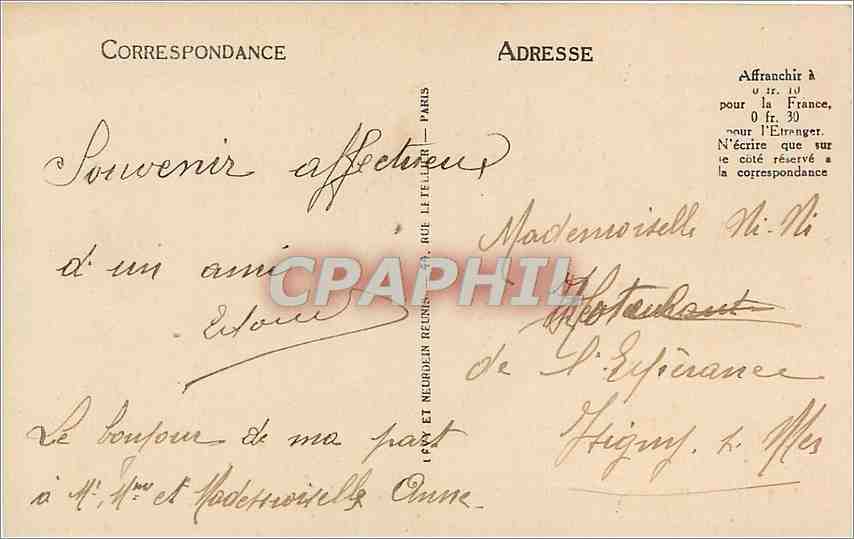 CORRESPONDANCE
ADRESSE
Affranchir à
0 fr. 10
pour la France,
0 fr. 30
pour l'Etranger.
N'écrire que sur
le côté réservé à
la correspondance
Souvenir affectueux
d'un ami
Le bonjour de ma part
à Mr, Mme et Mademoiselle Anne.
LEVY ET NEURDEIN RÉUNIS 44, RUE LETELLIER — PARIS
CPAPHIL
Mademoiselle Ni-Ni
de l'Espérance
Isigny s. Mer